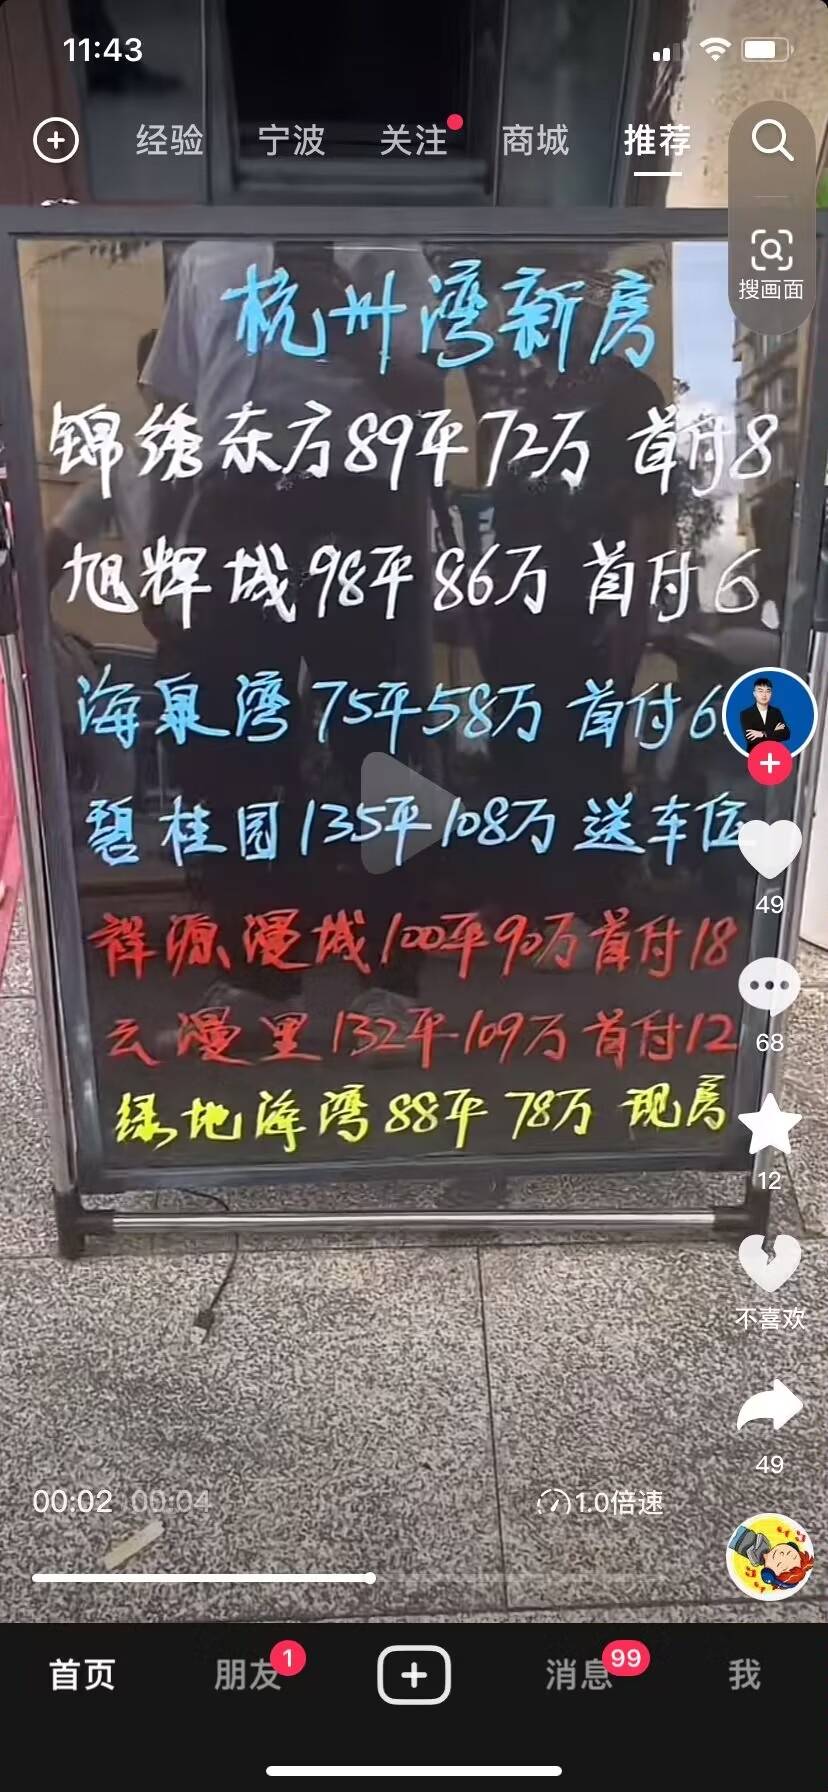 11:43
经验 宁波 关注 商城 推荐
搜画面
杭州湾新房
锦绣东方89平72万 首付8
旭辉城98平86万 首付6.
海泉湾75平58万 首付6
碧桂园135平108万 送车位
祥源漫城100平90万首付18
云漫里132平109万首付12
绿地海湾88平78万 现房
49
68
12
不喜欢
49
00:02 00:04
1.0倍速
首页 朋友 1 消息 99 我